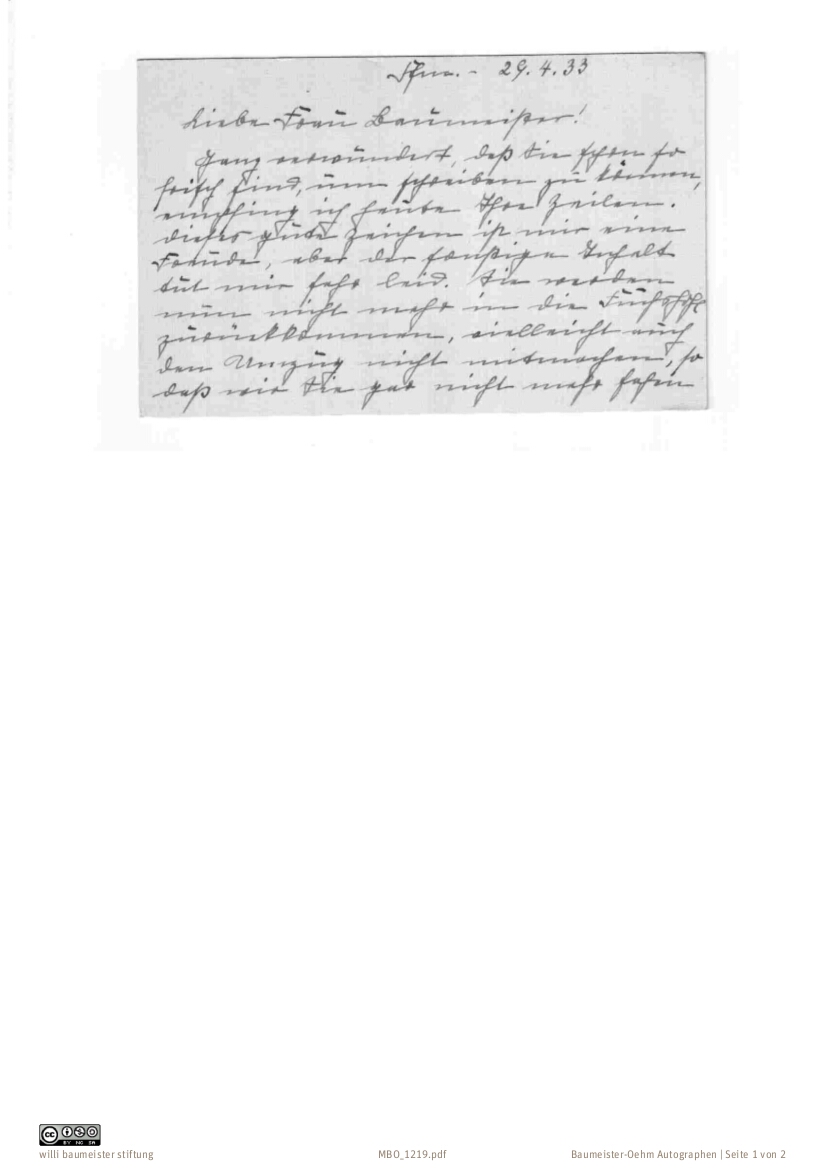 Ffm. - 29.4.33
Liebe Frau Baumeister!
Ganz verwundert, daß Sie schon so
frisch sind, um schreiben zu können,
empfing ich heute Ihre Zeilen.
Dieses gute Zeichen ist mir eine
Freude, aber der sonstige Inhalt
tut mir sehr leid. Sie werden
nun nicht mehr in die
zurückkommen, vielleicht auch
den Umzug nicht mitmachen, so
daß wir Sie gar nicht mehr sehen
BY NC SA
willi baumeister stiftung
MBO_1219.pdf
Baumeister-Oehm Autographen | Seite 1 von 2